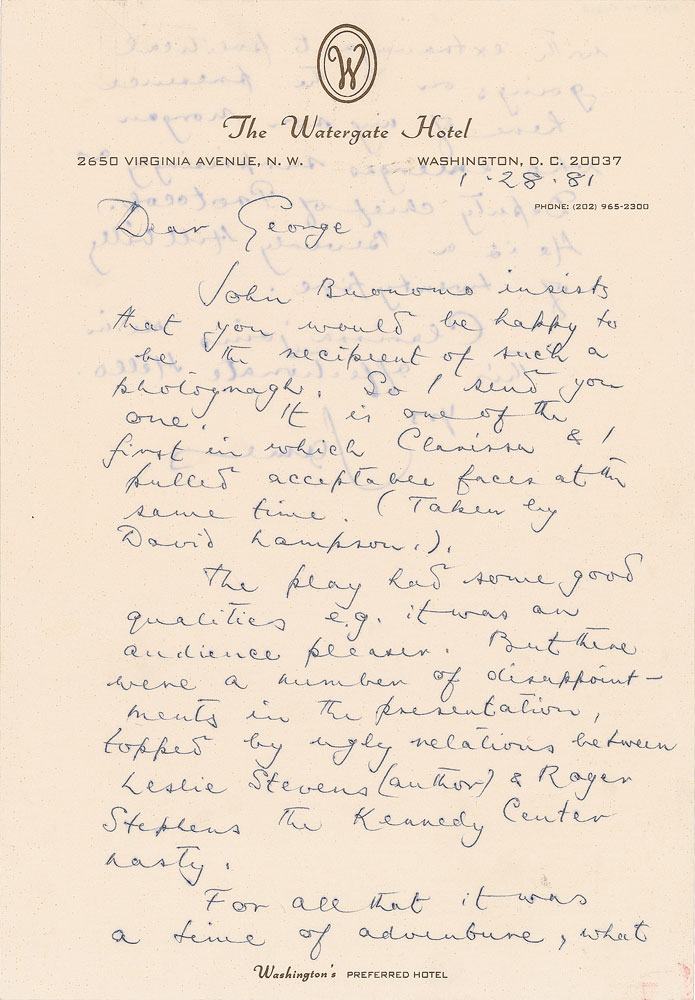 W
The Watergate Hotel
2650 VIRGINIA AVENUE, N. W. WASHINGTON, D. C. 20037
1·28·81
PHONE: (202) 965-2300
Dear George
John Buonomo insists
that you would be happy to
be the recipient of such a
photograph. So I send you
one. It is one of the
first in which Clarissa & I
pulled acceptable faces at the
same time. (Taken by
David Lampson.).
The play had some good
qualities e.g. it was an
audience pleaser. But there
were a number of disappoint-
ments in the presentation,
topped by ugly relations between
Leslie Stevens (author) & Roger
Stephens the Kennedy Center
nasty.
For all that it was
a time of adventure, what
Washington's PREFERRED HOTEL